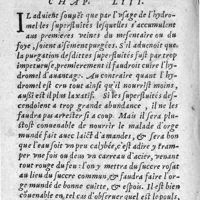 CHAP. LIII.
IL aduient souuēt que par l'vsage de l'hydro-
mel les superfluités lesquelles s'accumulent
aux premieres veines du mesentaire ou du
foye, soient aisémēt purgées. S'il aduenoit que
la purgation desdites superfluités fust par trop
impetueuse, premieremēt il faudroit cuire l'hy-
dromel d'auantage. Au contraire quant l'hy-
dromel est cru tout ainsi qu'il nourrit moins,
aussi est il plus laxatif. Si les superfluités des-
cendoient a trop grande abundance, il ne les
faudra pas arrester si a coup. Mais il sera plu-
stost conuenable de nourrir le malade d'orge
mundé fait auec laict d'amandes, & sera bon
que l'eau soit vn peu calybée, c'est adire y tramp-
per vne fois ou deux vn carreau d'acier, venant
tout rouge du feu: l'on y mettra du sucre rosat
au lieu du sucre commun, & faudra faire l'or-
ge mundé de bonne cuitte, & espois. Il est bien
conuenable en tel cas d'obseruer quel est le pouls,